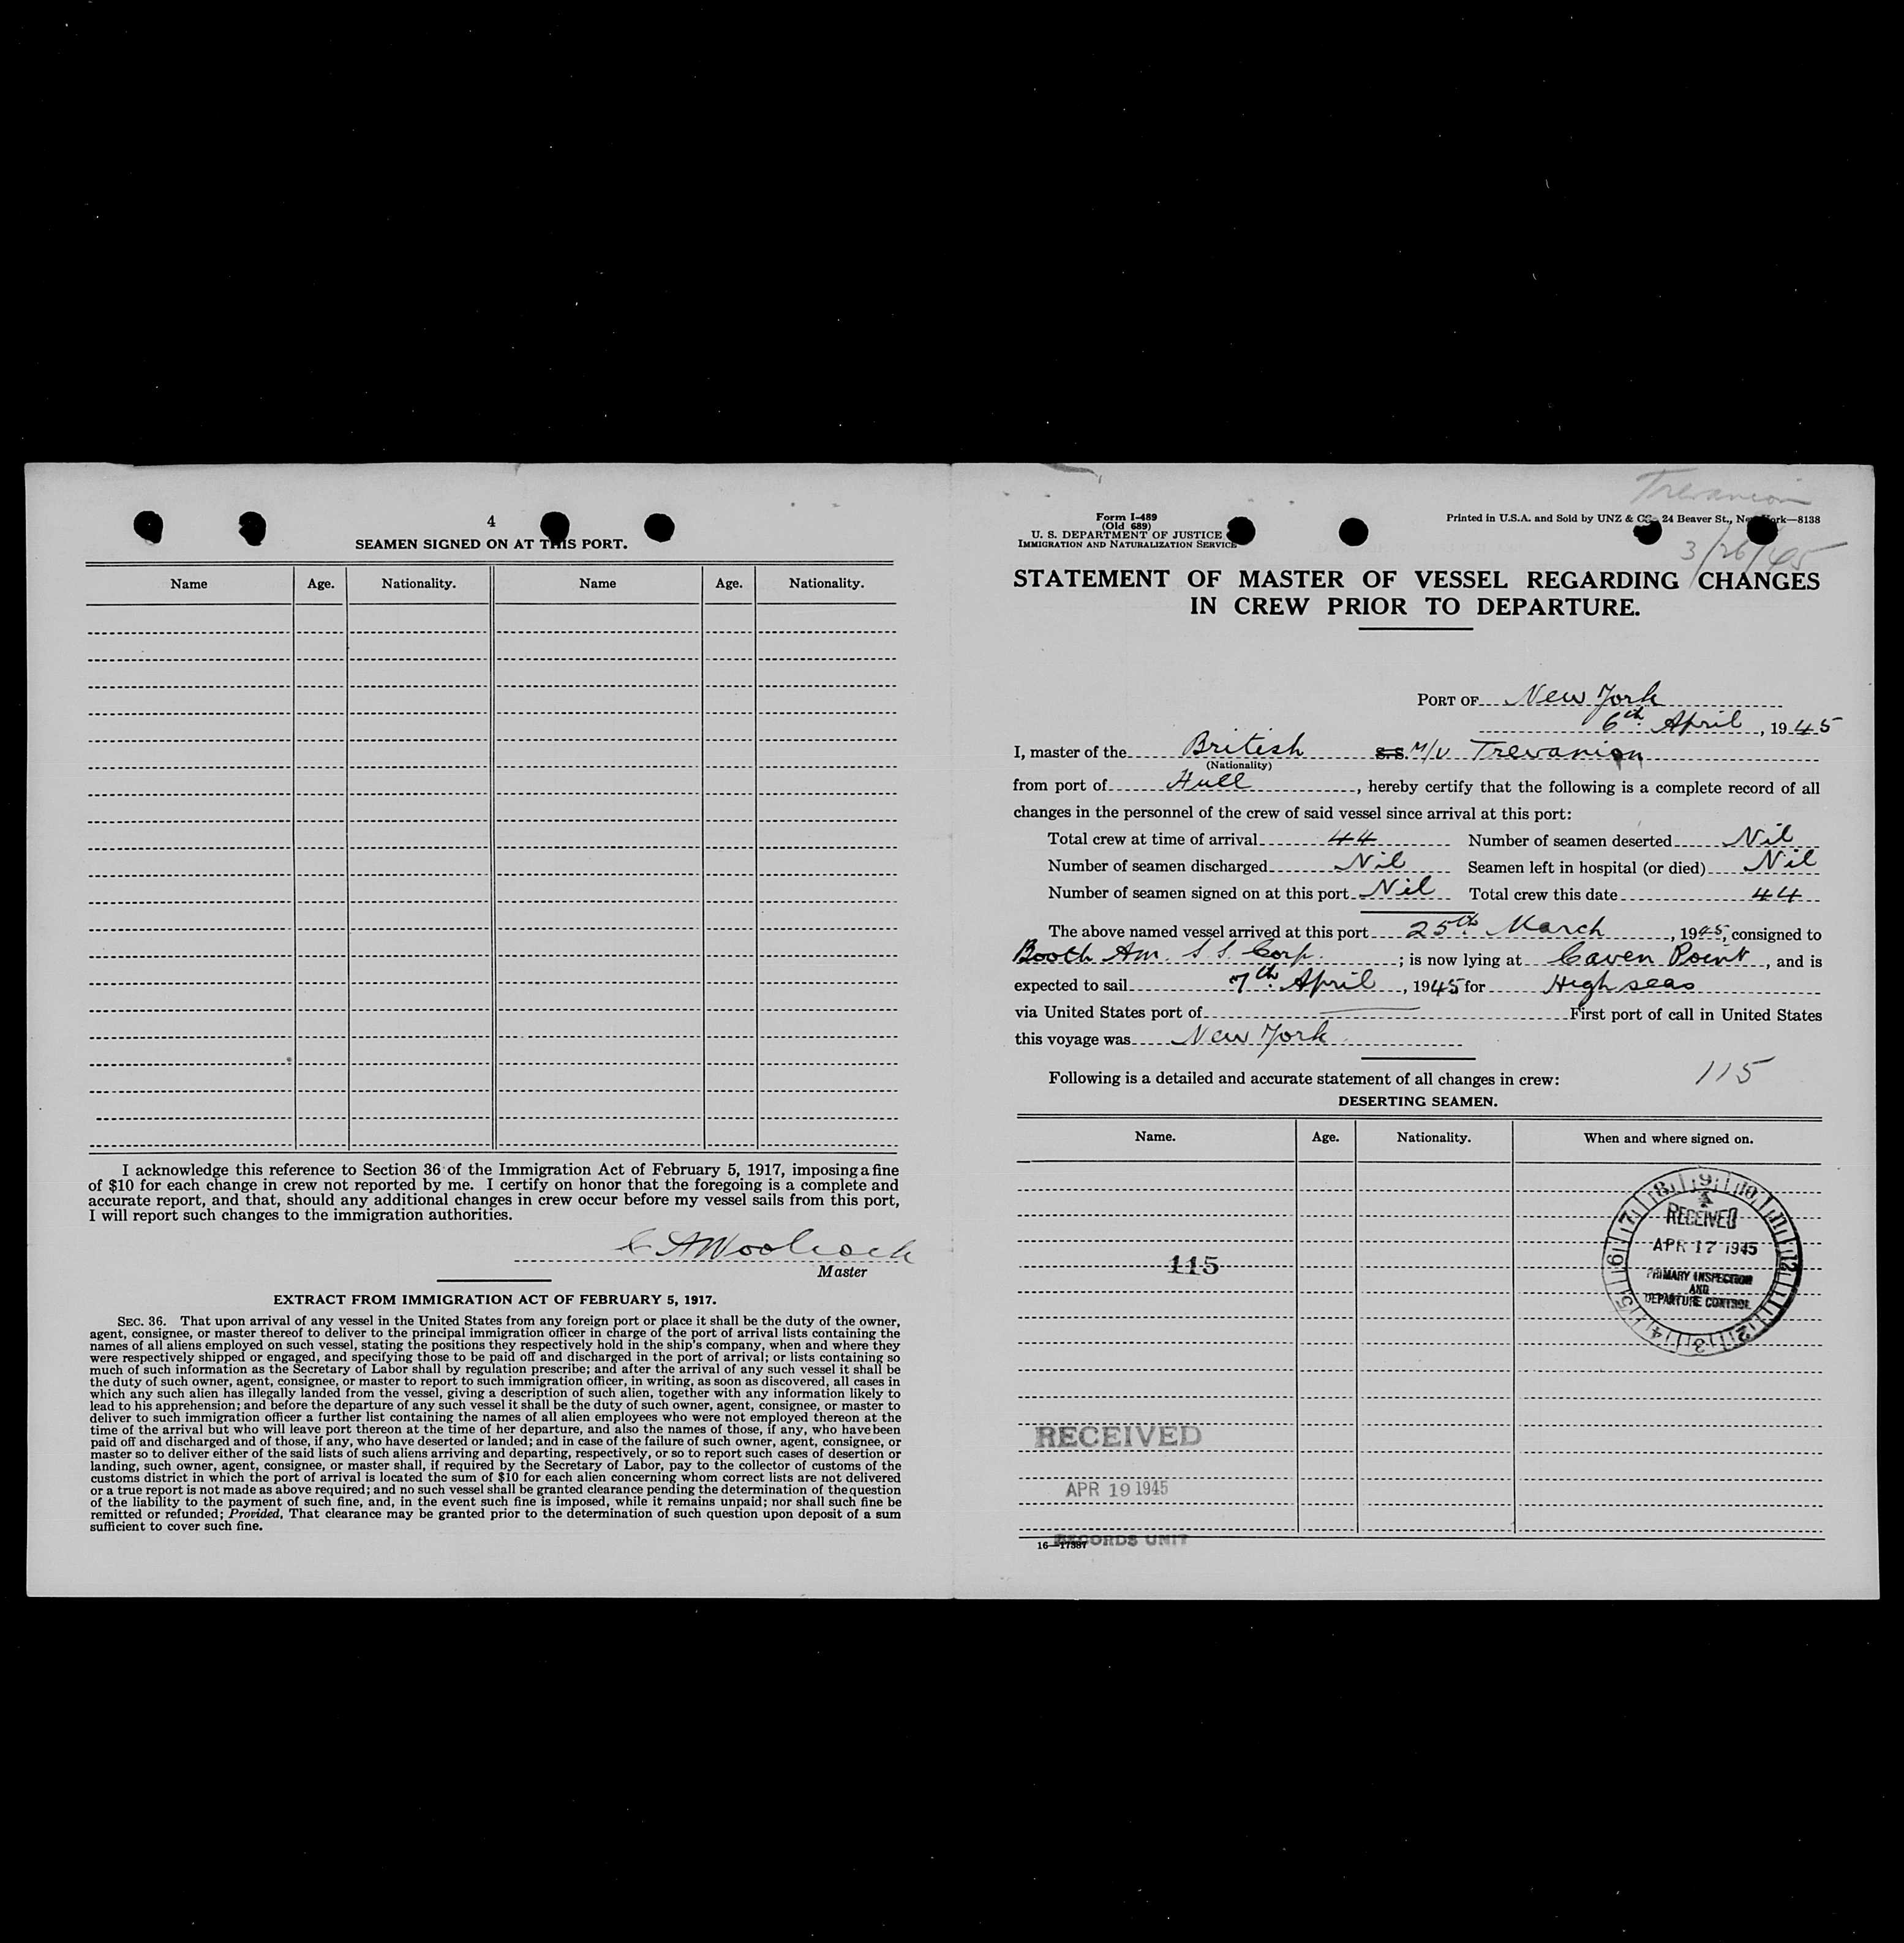 4
SEAMEN SIGNED ON AT THIS PORT.
Name Age. Nationality. Name Age. Nationality.
I acknowledge this reference to Section 36 of the Immigration Act of February 5, 1917, imposing a fine
of $10 for each change in crew not reported by me. I certify on honor that the foregoing is a complete and
accurate report, and that, should any additional changes in crew occur before my vessel sails from this port,
I will report such changes to the immigration authorities.
C A Woolcock
Master
EXTRACT FROM IMMIGRATION ACT OF FEBRUARY 5, 1917.
SEC. 36. That upon arrival of any vessel in the United States from any foreign port or place it shall be the duty of the owner,
agent, consignee, or master thereof to deliver to the principal immigration officer in charge of the port of arrival lists containing the
names of all aliens employed on such vessel, stating the positions they respectively hold in the ship's company, when and where they
were respectively shipped or engaged, and specifying those to be paid off and discharged in the port of arrival; or lists containing so
much of such information as the Secretary of Labor shall by regulation prescribe; and after the arrival of any such vessel it shall be
the duty of such owner, agent, consignee, or master to report to such immigration officer, in writing, as soon as discovered, all cases in
which any such alien has illegally landed from the vessel, giving a description of such alien, together with any information likely to
lead to his apprehension; and before the departure of any such vessel it shall be the duty of such owner, agent, consignee, or master to
deliver to such immigration officer a further list containing the names of all alien employees who were not employed thereon at the
time of the arrival but who will leave port thereon at the time of her departure, and also the names of those, if any, who have been
paid off and discharged and of those, if any, who have deserted or landed; and in case of the failure of such owner, agent, consignee, or
master so to deliver either of the said lists of such aliens arriving and departing, respectively, or so to report such cases of desertion or
landing, such owner, agent, consignee, or master shall, if required by the Secretary of Labor, pay to the collector of customs of the
customs district in which the port of arrival is located the sum of $10 for each alien concerning whom correct lists are not delivered
or a true report is not made as above required; and no such vessel shall be granted clearance pending the determination of the question
of the liability to the payment of such fine, and, in the event such fine is imposed, while it remains unpaid; nor shall such fine be
remitted or refunded; Provided, That clearance may be granted prior to the determination of such question upon deposit of a sum
sufficient to cover such fine.
Trevanion
3/26/45
Form I-489
(Old 689)
U. S. DEPARTMENT OF JUSTICE
IMMIGRATION AND NATURALIZATION SERVICE
Printed in U.S.A. and Sold by UNZ & CO. 24 Beaver St., New York—8138
STATEMENT OF MASTER OF VESSEL REGARDING CHANGES
IN CREW PRIOR TO DEPARTURE.
PORT OF New York
6th April, 1945
I, master of the British S.S. M/V Trevanion
(Nationality)
from port of Hull, hereby certify that the following is a complete record of all
changes in the personnel of the crew of said vessel since arrival at this port:
Total crew at time of arrival 44 Number of seamen deserted Nil
Number of seamen discharged Nil Seamen left in hospital (or died) Nil
Number of seamen signed on at this port Nil Total crew this date 44
The above named vessel arrived at this port 25th March, 1945, consigned to
Booth Am. S S Corp.; is now lying at Caven Point, and is
expected to sail 7th April, 1945 for High seas
via United States port of — First port of call in United States
this voyage was New York
115
Following is a detailed and accurate statement of all changes in crew:
DESERTING SEAMEN.
Name. Age. Nationality. When and where signed on.
115
8 9 10 11 12 1 2 3 4 5 6 7
RECEIVED
APR 17 1945
PRIMARY INSPECTION
AND
DEPARTURE CONTROL
RECEIVED
APR 19 1945
RECORDS UNIT
16—17387